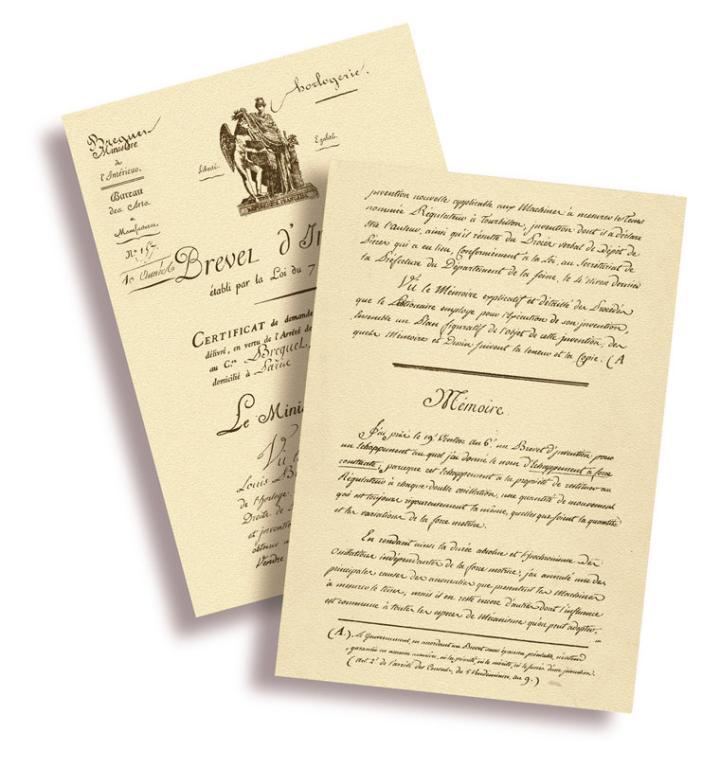 horlogerie.
Breguet
Ministère
de
l'Intérieur.
Bureau
des Arts
et
Manufactures
Nº 157.
Liberté.
Egalité.
RÉPUBLIQUE FRANÇAISE
Brevet d'In
établi par la Loi du 7
CERTIFICAT de demande
délivré, en vertu de l'Arrêté de
au C.en Breguet,
domicilié à Paris
Le Minis
Vu le
Louis B
de l'horloge
Droits de
et invent
obtenu
Vendre
invention nouvelle applicable aux Machines à mesurer le tems
nommée Régulateur à Tourbillon, invention dont il a déclaré
être l'auteur, ainsi qu'il résulte du Procès verbal de Dépôt de
Pièces qui a eu lieu, Conformément à la Loi, au Secrétariat de
la Préfecture du Département de la Seine, le
Vu le Mémoire explicatif et détaillé des Procédés
que le Pétitionnaire employe pour l'exécution de son invention,
Ensemble un Plan figuratif de l'objet de cette invention, des
quels Mémoire et Dessin suivent la teneur et la Copie. (A
Mémoire.
J'ai pris le 19 Ventôse an 6.e un Brevet d'invention pour
un Echappement au quel j'ai donné le nom d'Echappement à force
constante, parceque cet Echappement a la propriété de restituer au
Régulateur à chaque double oscillation, une quantité de mouvement
qui est toujours rigoureusement la même, quelles que soient la quantité
et les variations de la force motrice.
En rendant ainsi la durée absolue et l'Isochronisme des
Oscillations indépendantes de la force motrice; j'ai annulé une des
principales causes des anomalies que présentent les Machines
à mesurer le tems, mais il en reste encore d'autres dont l'influence
est commune à toutes les espèces de Mécanisme qu'on peut adopter.
(A). Le Gouvernement, en accordant un Brevet sans examen préalable, n'entend
garantir en aucune manière, ni la priorité, ni le mérite, ni le succès d'une invention.
(Art. 2.e de l'arrêté des Consuls, du 5 Vendémiaire, an 9.)